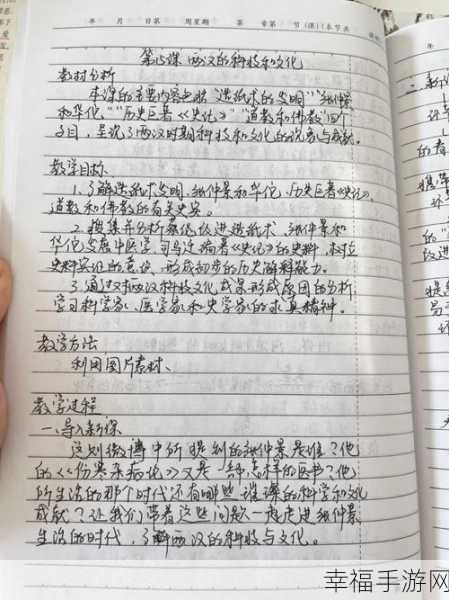 年 月 日第 周星期 第 章第 节(课)本节共
第15课 两汉的科技和文化
教材分析
本课的主要内容包括“造纸术的发明”“张仲景
和华佗”“历史巨著《史记》”“道教和佛教”四个
子目,呈现了两汉时期科技和文化的发展与成就。
教学目标
1.了解造纸术发明、张仲景和华佗、历史巨著《史记》、
道教和佛教的有关史实。
2.搜集并分析蔡伦改进造纸术、张仲景和
华佗发展中医学、司马迁编著《史记》的史料,树立
史料实证的意识,形成初步的历史解释能力。
3.通过对两汉科技文化成果形成原因的分析,
学习科学家、医学家和史学家的求真精神。
教学方法
利用图片素材、
教学过程
一、导入新课
这则微博中所提到的张仲景是谁?他
的《伤寒杂病论》又是一部怎样的医书?他
所生活的那个时代还有哪些璀璨的科学和文化
成就?让我们带着这些问题一起走进张仲景
生活的时代,了解两汉的科技与文化。
幸福手游网